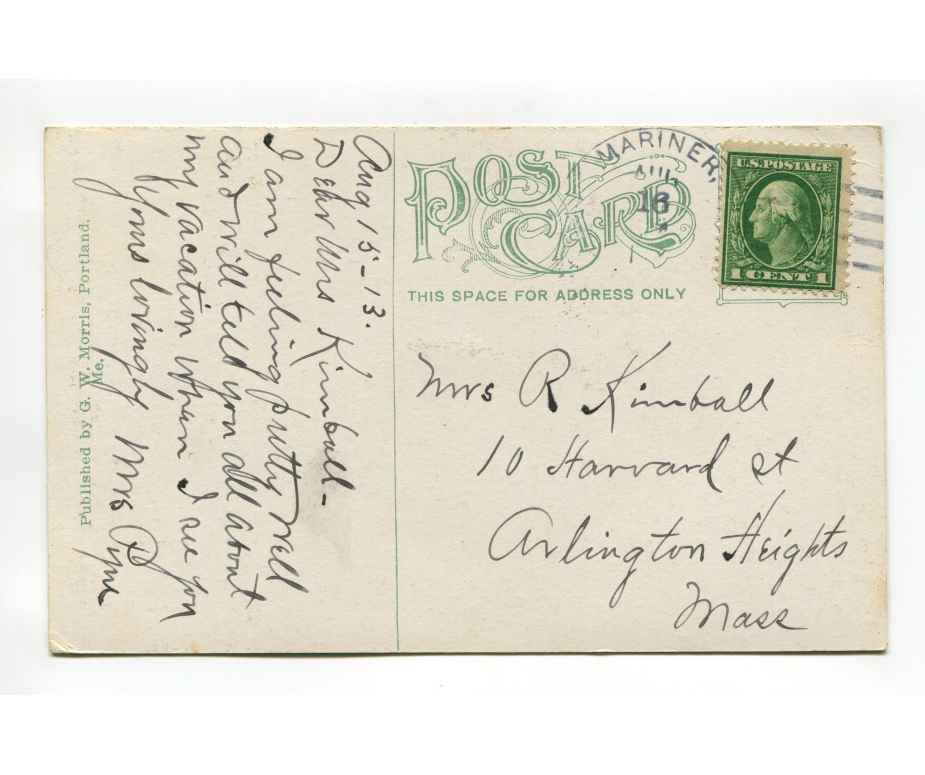 Aug 15-13.
Dear Mrs Kimball-
I am feeling pretty well
and will tell you all about
my vacation when I see you
Yours lovingly Mrs Pyne
Published by G. W. Morris, Portland.
Me.
POST
CARD
THIS SPACE FOR ADDRESS ONLY
MARINER,
AUG
16
U.S. POSTAGE
1 CENT 1
Mrs R Kimball
10 Harvard st
Arlington Heights
Mass